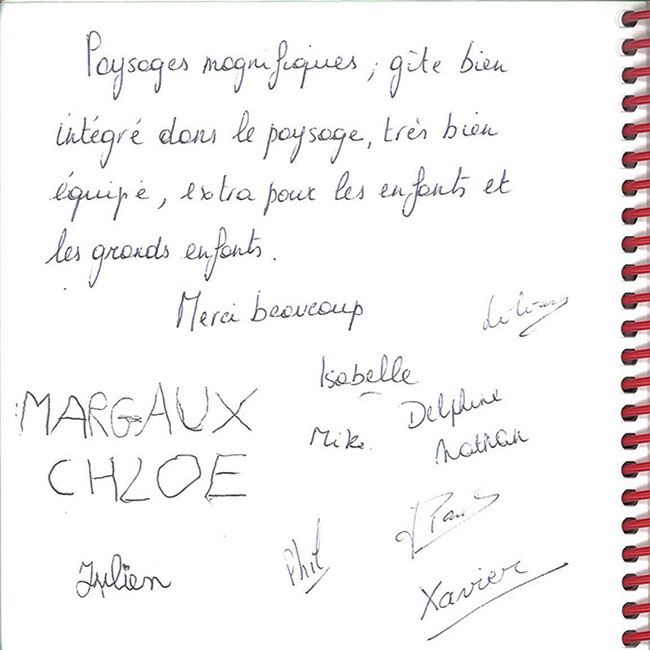 Paysages magnifiques, gîte bien
intégré dans le paysage, très bien
équipé, extra pour les enfants et
les grands enfants.
Merci beaucoup
Isabelle
MARGAUX
Delphine
Mike.
Nathan
CHLOE
Julien
Phil
Xavier